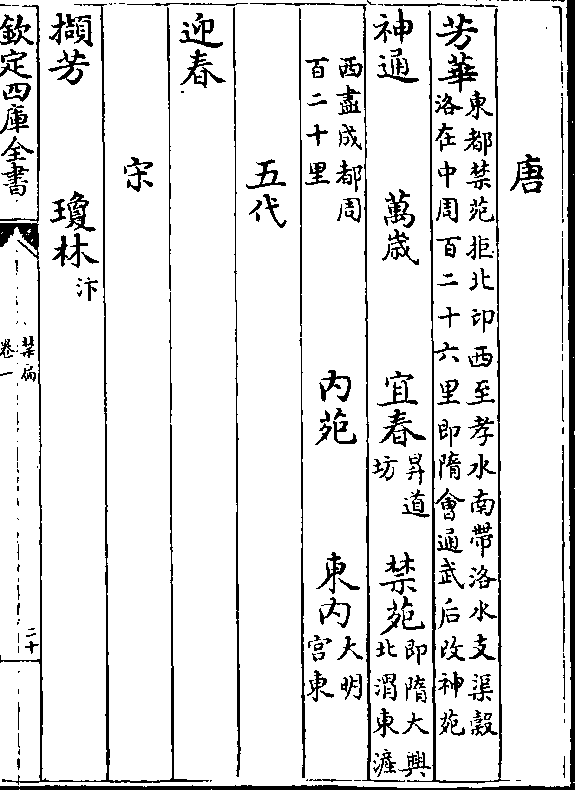 唐
芳華東都禁苑拒北卬西至孝水南帶洛水支渠穀
洛在中周百二十六里即隋會通武后改神苑
神通 萬歳 宜春昇道坊 禁苑即隋大興北渭東滻
西盡成都周百二十里 内苑 東内大明宮東
五代
迎春
宋
擷芳 瓊林汴
欽定四庫全書
禁扁
卷一
二十